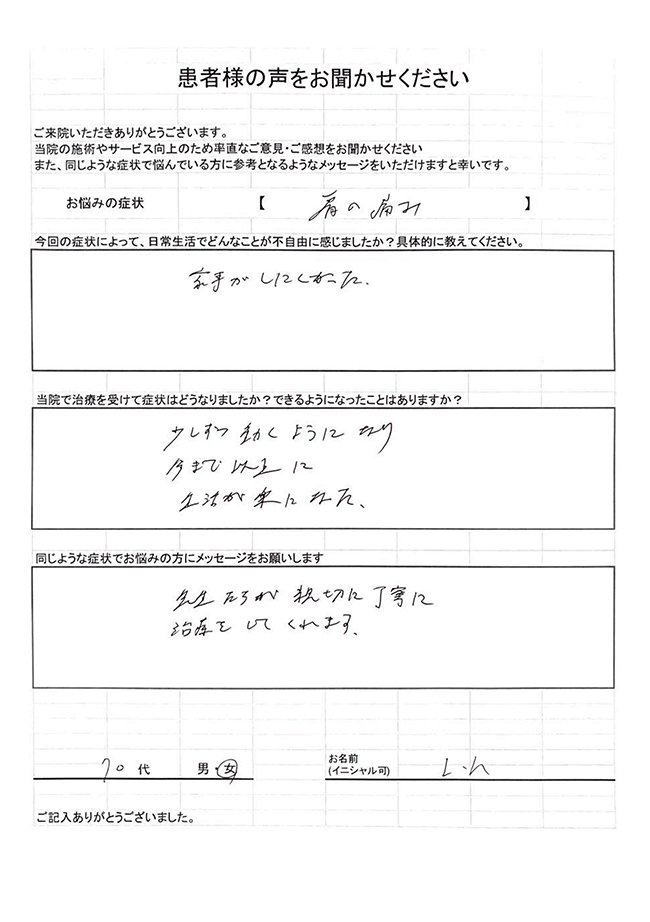 患者様の声をお聞かせください
ご来院いただきありがとうございます。
当院の施術やサービス向上のため率直なご意見・ご感想をお聞かせください
また、同じような症状で悩んでいる方に参考となるようなメッセージをいただけますと幸いです。
お悩みの症状 【 肩の痛み 】
今回の症状によって、日常生活でどんなことが不自由に感じましたか？具体的に教えてください。
家事がしにくかった.
当院で治療を受けて症状はどうなりましたか？できるようになったことはありますか？
少しずつ動くようになり
今まで以上に
生活が楽になった、
同じような症状でお悩みの方にメッセージをお願いします
先生たちが親切に丁寧に
治療をしてくれます.
70代 男・女 お名前
(イニシャル可)
ご記入ありがとうございました。